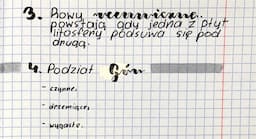 3. Rowy oceaniczne...
powstają gdy jedna z płyt
litosfery podsuwa się pod
drugą.
4. Podział Gór
- czynne.
- drzemiące,
- wygasłe.